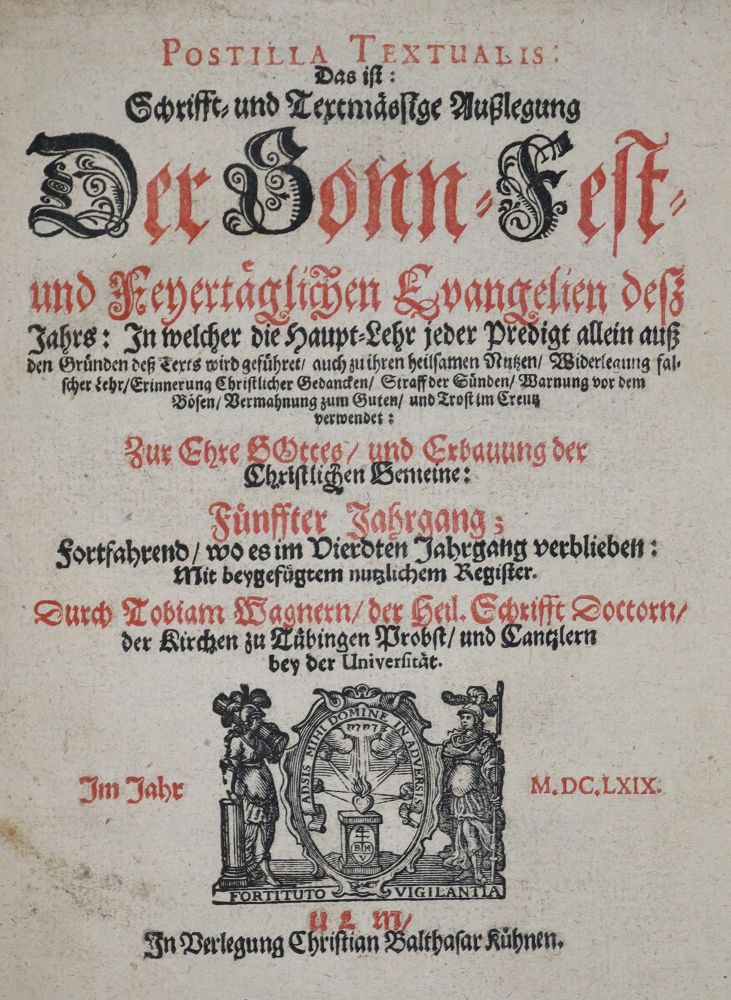 POSTILLA TEXTUALIS:
Das ist:
Schrifft- und Textmässige Außlegung
Der Sonn- Fest-
und Feyertäglichen Evangelien deß
Jahrs: In welcher die Haupt-Lehr jeder Predigt allein auß
den Gründen deß Texts wird geführet/ auch zu ihren heilsamen Nutzen/ Widerlegung fal-
scher Lehr/ Erinnerung Christlicher Gedancken/ Straff der Sünden/ Warnung vor dem
Bösen/ Vermahnung zum Guten/ und Trost im Creutz
verwendet:
Zur Ehre GOttes/ und Erbauung der
Christlichen Gemeine:
Fünffter Jahrgang;
Fortfahrend/ wo es im Vierdten Jahrgang verblieben:
Mit beygefügtem nutzlichem Register.
Durch Tobiam Wagnern/ der Heil. Schrifft Doctorn/
der Kirchen zu Tübingen Probst/ und Cantzlern
bey der Universität.
ADSIS MIHI DOMINE IN ADVERSIS
BK
V
Im Jahr M.DC.LXIX.
FORTITUTO VIGILANTIA
ULM/
In Verlegung Christian Balthasar Kühnen.